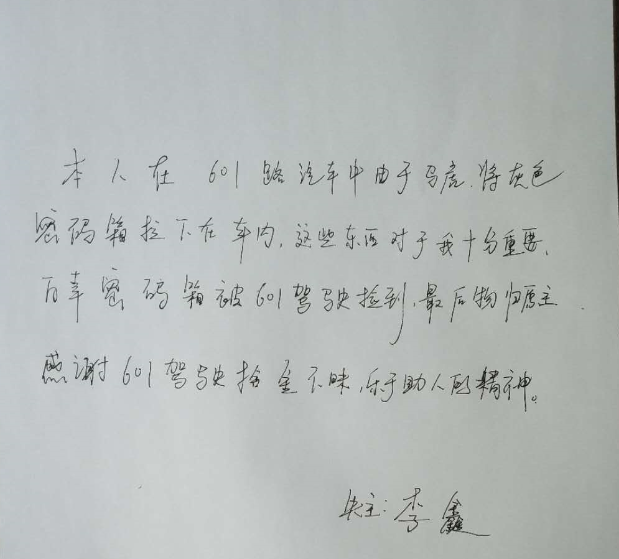 本人在601路汽车中由于马虎.将灰色
密码箱拉下在车内，这些东西对于我十分重要，
万幸密码箱被601驾驶捡到，最后物归原主.
感谢601驾驶拾金不昧，乐于助人的精神。
失主：李鑫